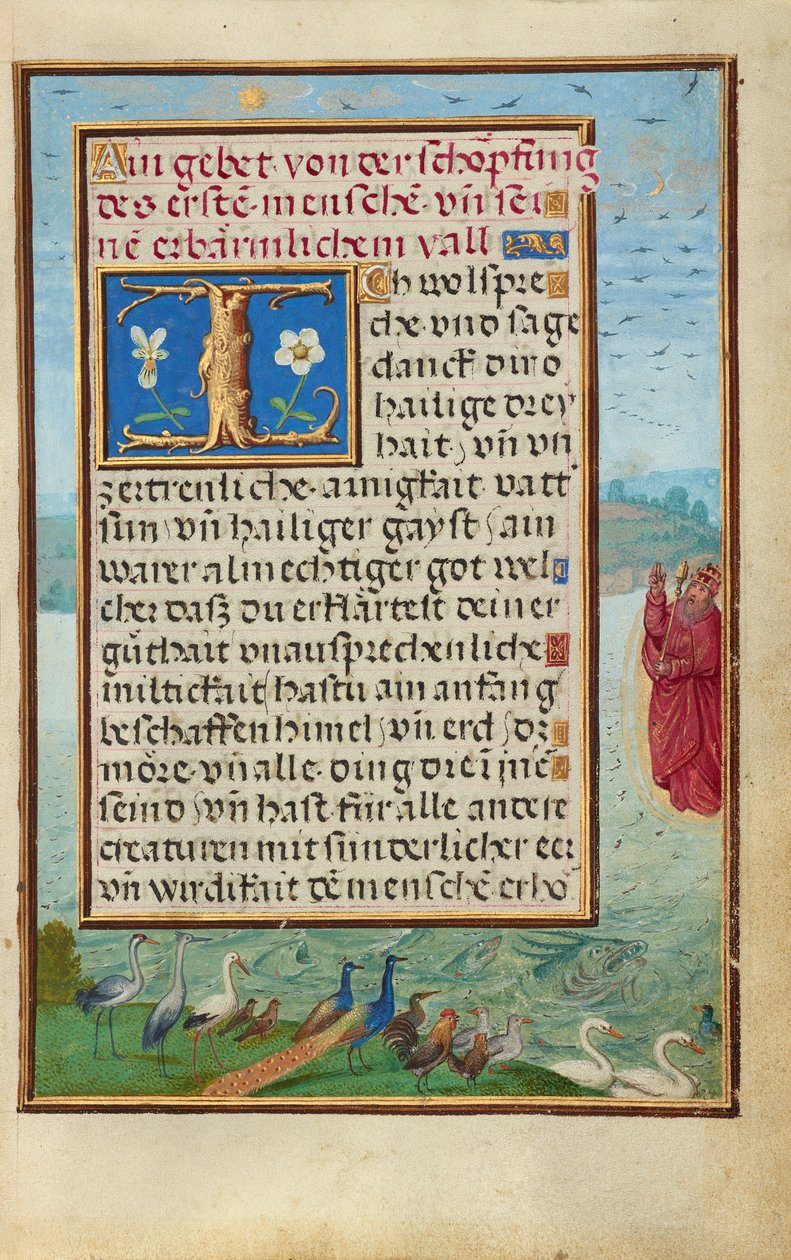 Ain gebet von der schöpfung
des erstē menschē vn̄ sei
nē erbärmlichem vall
ICh wolspre
che vnd sage
danck diro
hailige drey
hait, vn̄ vn
zertrenliche ainigkait vatt
sun, vn̄ hailiger gayst, ain
warer almechtiger got wel
cher dasz du erklärtest deiner
gůthait vnausprechenliche
miltickait, hastu am anfang
beschaffen himel, vn̄ erd, dz
möre vn̄ alle ding die ī inē
seind, vn̄ hast für alle andere
creaturen mit sünderlicher eer
vn̄ wirdikait dē menschē erhö